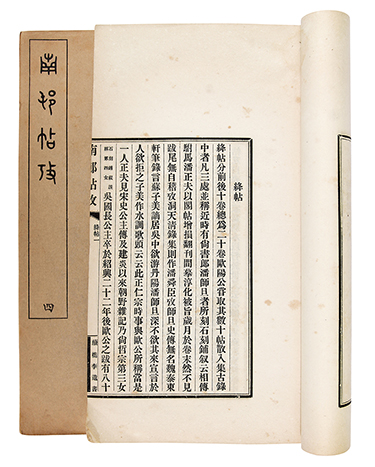 南邨帖攷
四
絳帖
絳帖分前後十卷總爲二十卷歐陽公嘗取其數十帖散入集古錄
中者凡三處並稱近時有尙書郎潘師旦者所刻石刻鋪叙云相傳
駙馬潘正夫以閣帖增損翻刊間摹淳化被旨歲月於卷末然不見
跋尾無自稽攷洞天清錄集則作潘舜臣攷師旦史傳無名魏泰東
軒筆錄言蘇子美謫居吳中欲游丹陽潘師旦深不欲其來宣言於
人欲拒之子美作水調歌頭云云此正仁宗時事與歐公所稱當是
一人正夫見宋史公主傳及建炎以來朝野雜記乃尙哲宗第三女
吳國長公主卒於紹興二十二年後歐公之跋有八十
南邨帖攷
絳帖
一